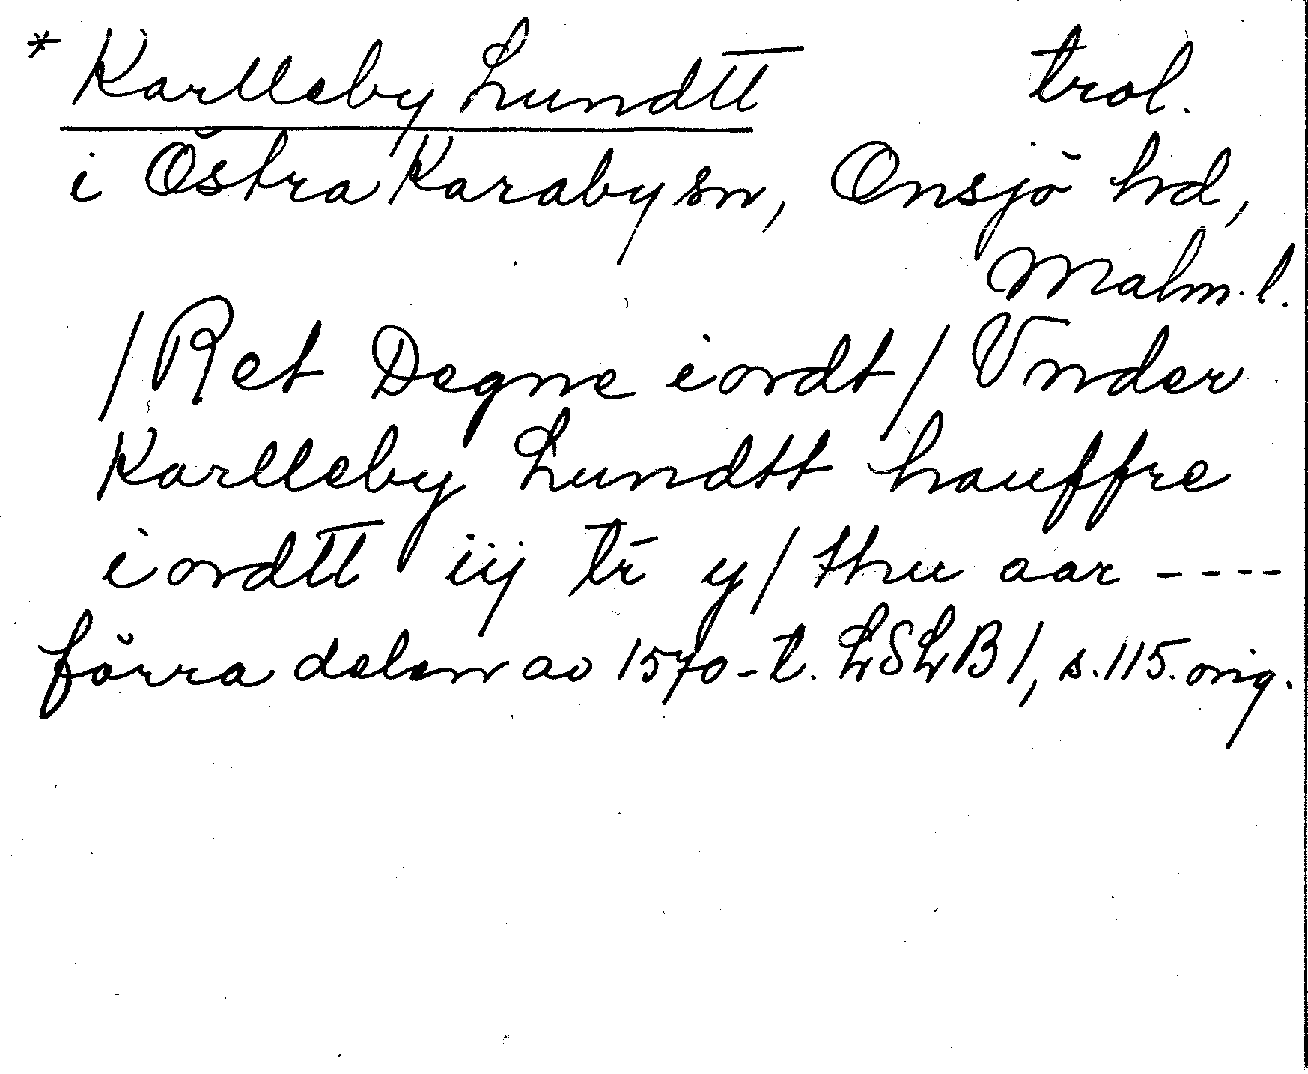 * Karlleby Lundtt trol.
i Östra Karaby sn, Onsjö hd,
Malm. l.
/Ret Degne iordt/ Vnder
Karlleby Lundtt hauffre
iordtt iij tr y/ thu aar ----
förra delen av 1570-t. LSLB 1, s. 115. orig.